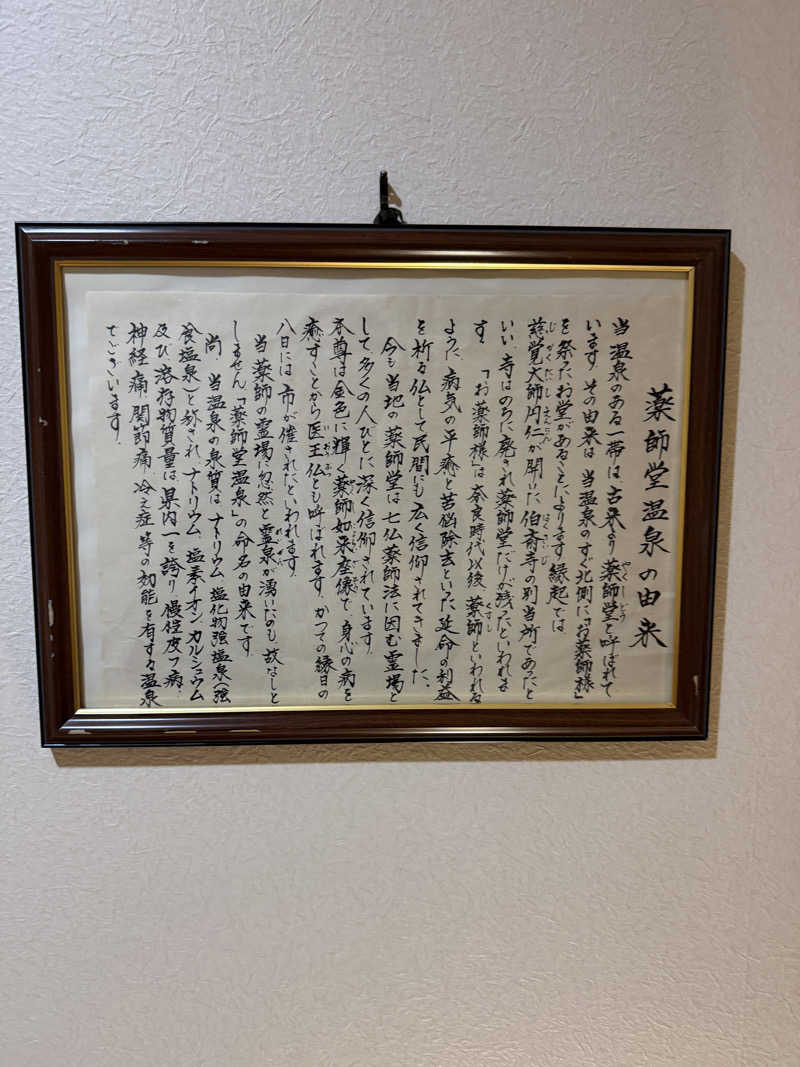 薬師堂温泉の由来
当温泉のある一帯は、古来より薬師堂と呼ばれて
やくしどう
います。その由来は、当温泉のすぐ北側に「お薬師様」
を祭ったお堂があることによります。縁起では
慈覚大師円仁が開いた伯斎寺の別当所であったと
じかくだいしえんにん
はくさいじ
いい、寺はのちに廃され薬師堂だけが残ったといわれま
す。「お薬師様」は、奈良時代以後、薬師といわれる
くすし
ように、病気の平癒と苦悩除去といった延命の利益
を祈る仏として民間にも広く信仰されてきました。
今も当地の薬師堂は、七仏薬師法に因む霊場と
して、多くの人びとに深く信仰されています。
本尊は金色に輝く薬師如来座像で、身心の病を
癒すことから医王仏とも呼ばれます。かつての縁日の
いおうぶつ
八日には、市が催されたといわれます。
当薬師の霊場に忽然と霊泉が湧いたのも、故なしと
れいせん
しません。「薬師堂温泉」の命名の由来です。
尚、当温泉の泉質は、ナトリウム、塩化物強塩泉(強
食塩泉)と称され、ナトリウム、塩素イオン、カルシュウム
及び溶存物質量は、県内一を誇り、慢性皮フ病、
神経痛、関節痛、冷え症、等の効能を有する温泉
でございます。